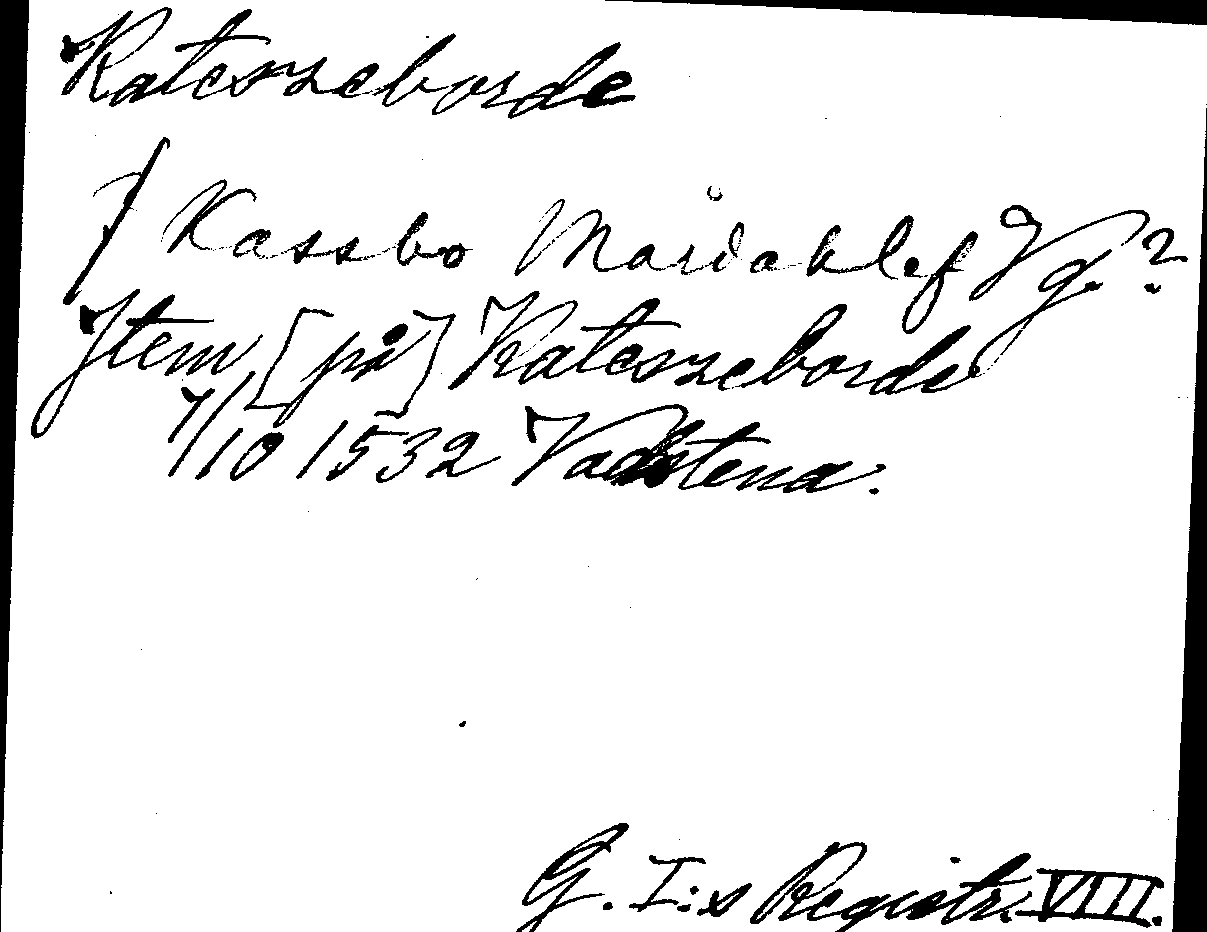 Rateszeborde
/ Kassbo Mårdaklef Vg.?
Item [på] Rateszeborde
7/10 1532 Vadstena.
G. I:s Registr. VIII.